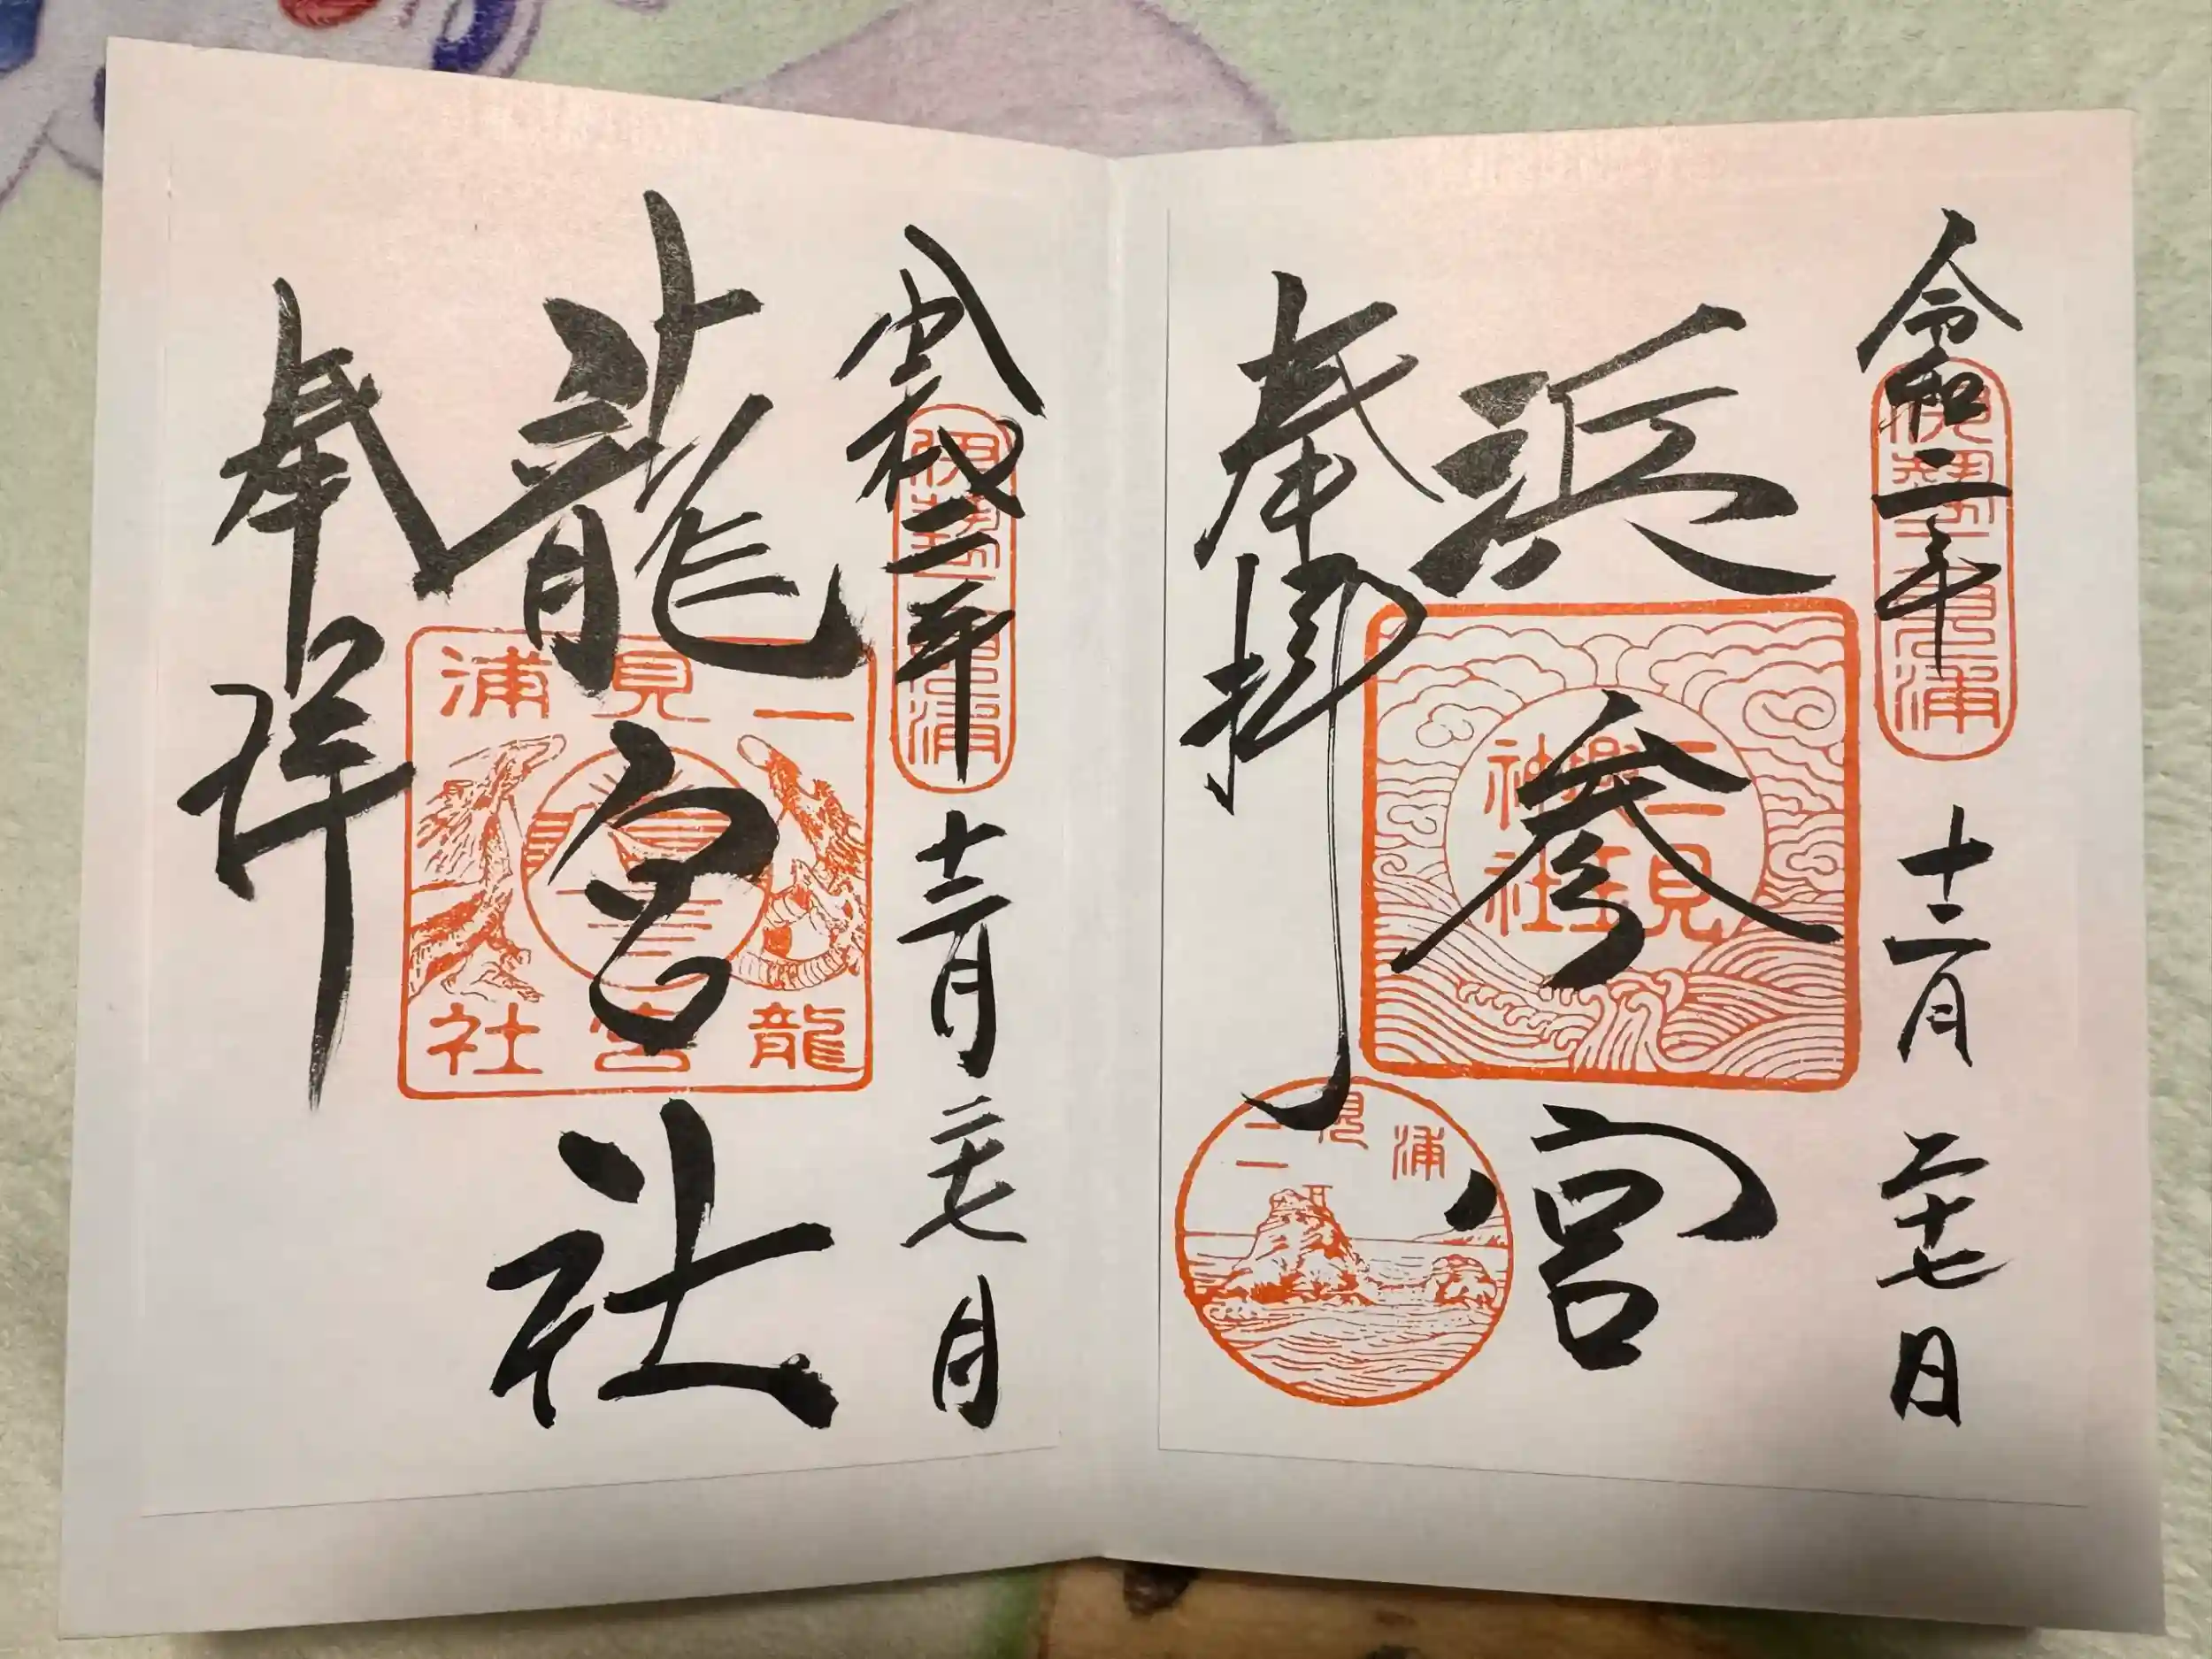 令和二年 十二月 二十七日
伊勢二見浦
浜参宮
二見
興玉
神社
奉拝
二見浦
令和二年 十二月 二十七日
伊勢二見浦
龍宮社
二見浦
龍宮社
奉拝